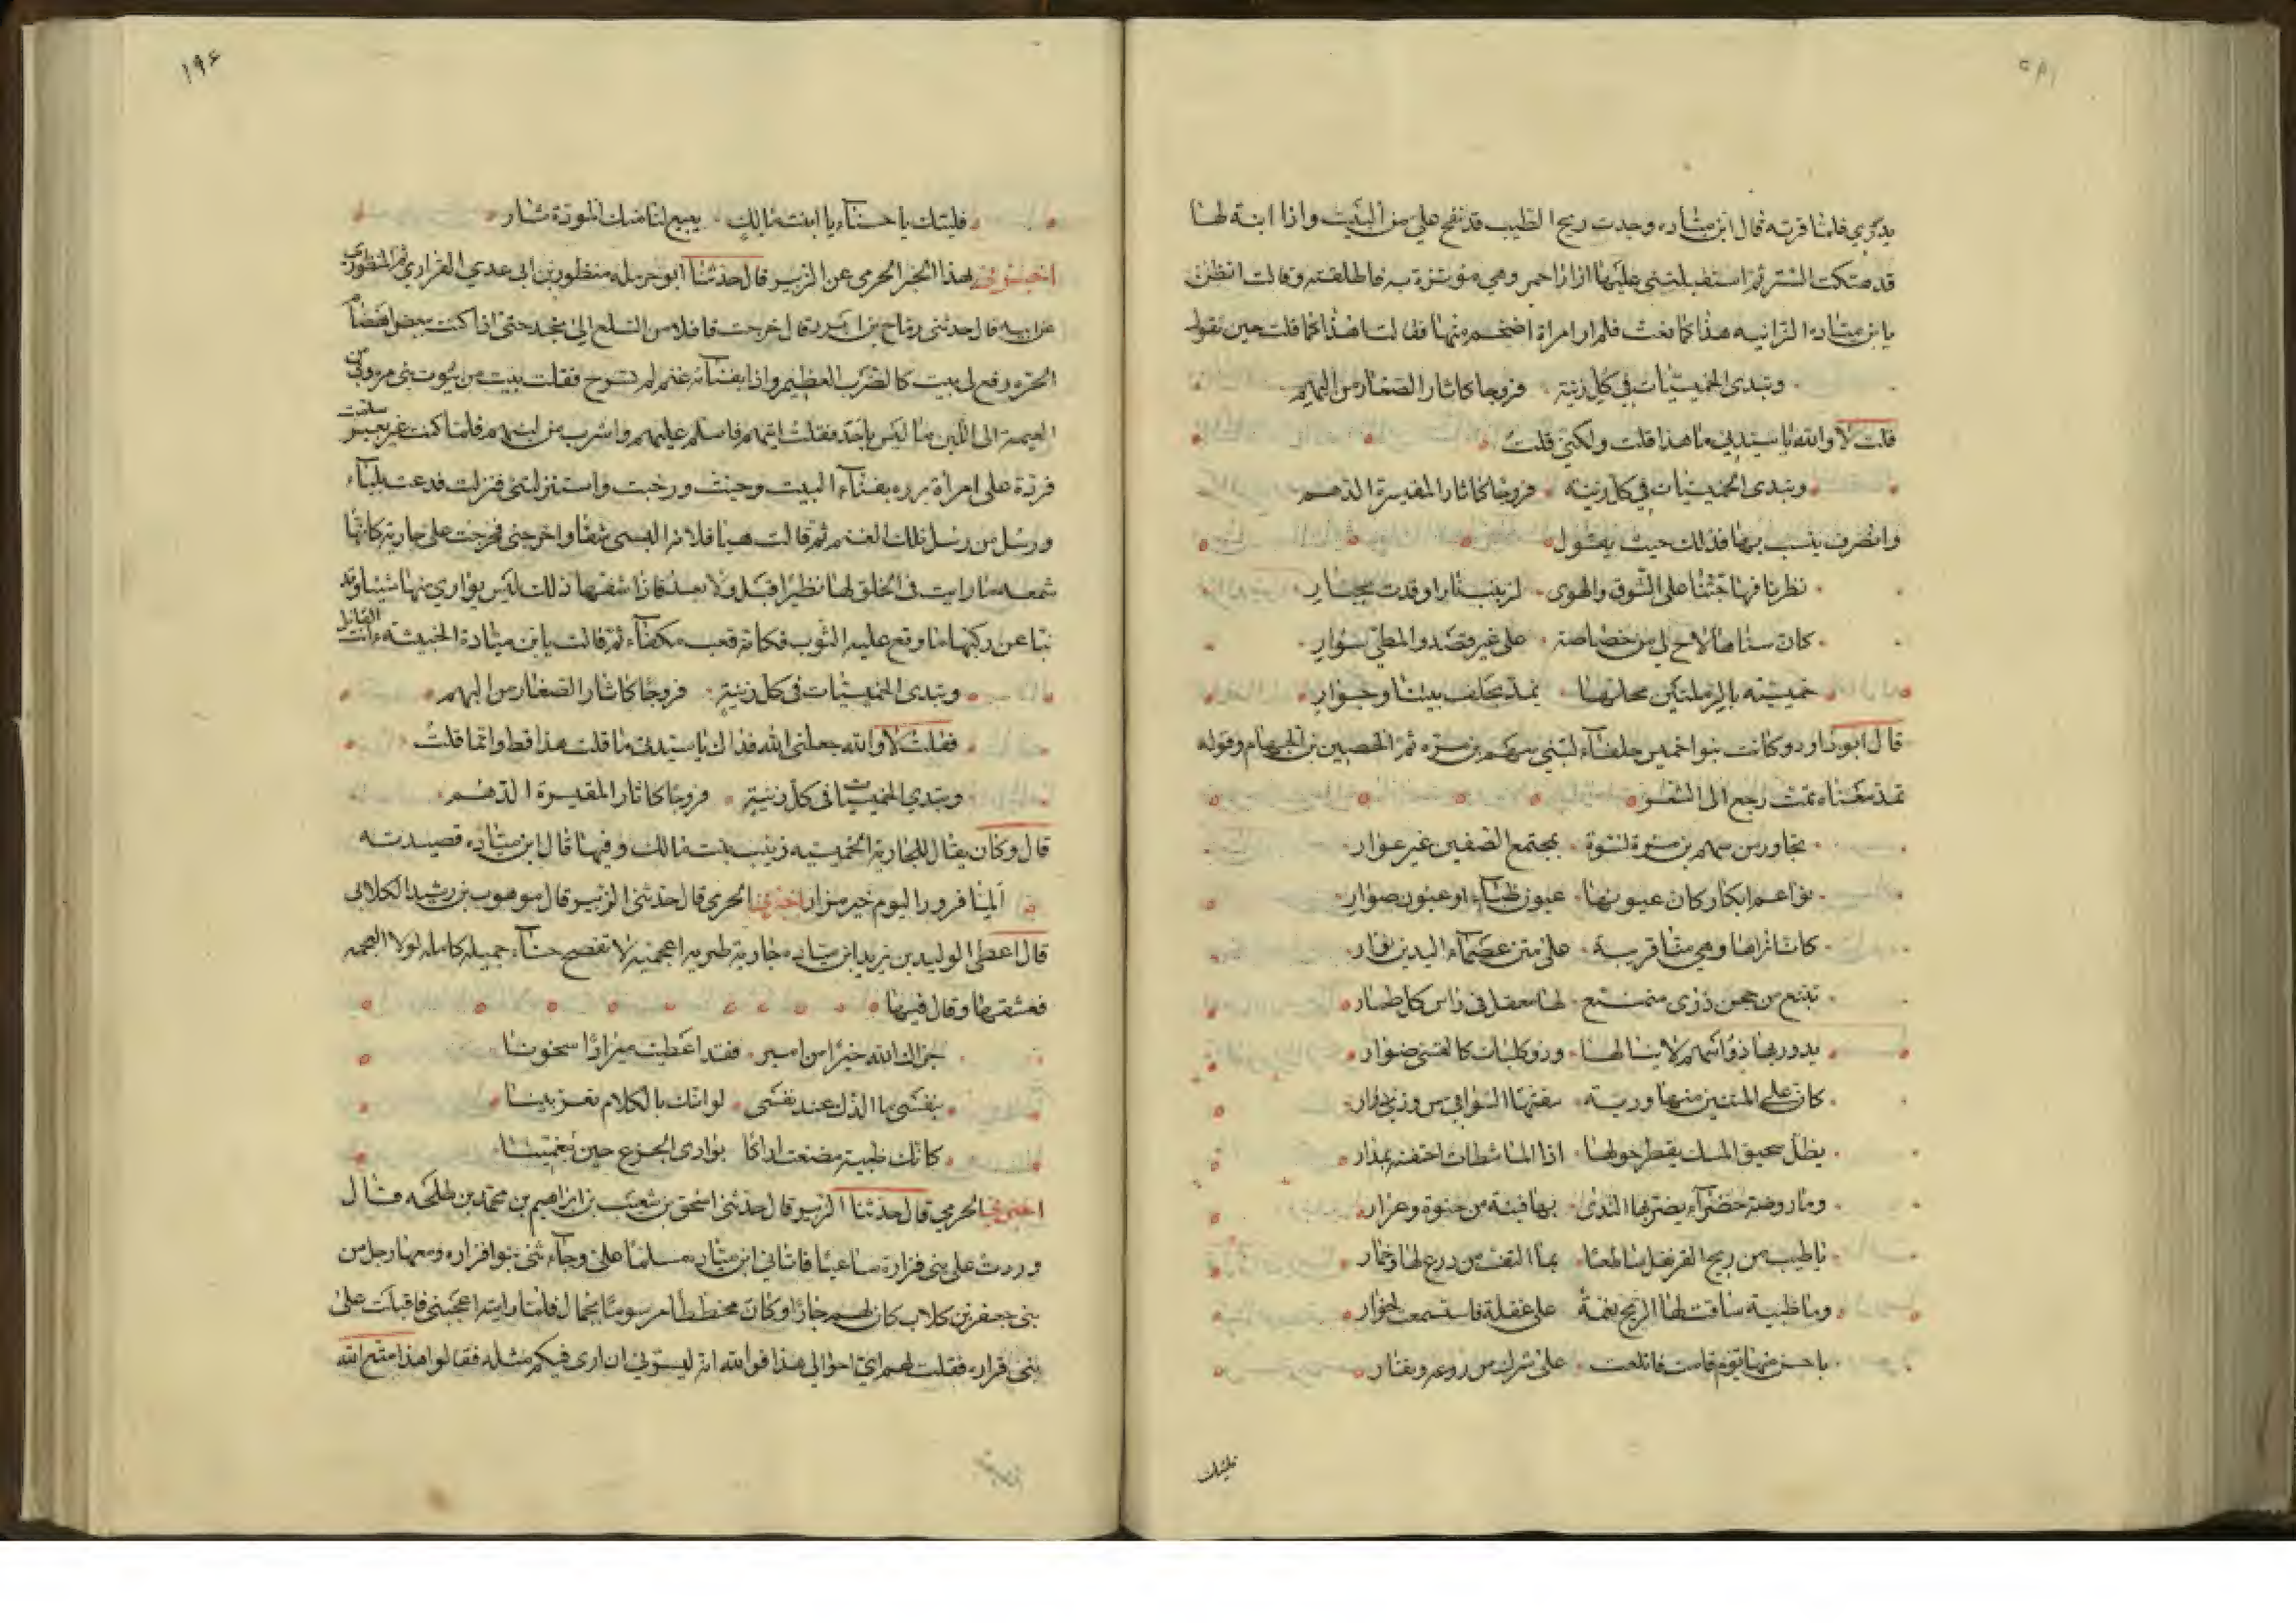 يدكري فلما قربته قال ابن مياده وجدت ريح الطيب قد نفح علي من البيت واذا ابنة لها
قد هتكت الستر ثم استقبلتني عليها ازار احمر وهي موتزرة به فاطلقته وقالت انظر
يا بن مياده الزانيه هذا كما نعت فلم ار امراة اضخم منها فقالت اهذا كما قلت حين تقول
وتبدي الخميسيات في كل زينة فروجا كاثار الصغار من البهم
قلت لا والله يا سيدتي ما هذا قلت ولكني قلت
وتبدي الخميسيات في كل زينة فروجا كاثار المقيسرة الدهم
وانصرف ينسب بها فذلك حيث يقول
نظرنا فهاجتنا على الشوق والهوى لزينب نار اوقدت بجبار
كان سناها لاح لي من خصاصة على غير قصد والمطي سوار
خميسية بالرملتين محلها تمد بحلف بيننا وجوار
قال ابو داود وكانت بنوا خميس حلفاء لبني سهم بن مرة ثم الحصين بن الحمام وقوله
تمد معناه تمت رجع الى الشعر
تجاور من سهم بن مرة نسوة بمجتمع الضفين غير عوار
نواعم ابكار كان عيونها عيون ظباء او عيون صوار
كانا نراها وهي منا قريبة على متن عصماء اليدين نوار
تتبع من حجن ذرى متمنع لها معقل في راس كل طمار
يدور بها ذو اسهم لا ينالها وذو كلبات كالقسي ضوار
كان على المتنين منها وديـة سقتها السواقي من ودي دوار
يظل سحيق المسك يقطر حولها اذا الماشطات احتفنه بمدار
وما روضة خضراء يضربها الندى بها فينة من حنوة وعرار
باطيب من ريح القرنفل ساطعا بما التف من درع لها وخمار
وما ظبية ساقت لها الريح نغمة على غفلة فاستمعت لخوار
باحسن منها يوم قامت فاتلعت على شرك من روعه ونفار
فليتك
۱۹۶
فليتك يا حسناء يا ابنت مالك يبيع لنا منك المودة شار
اخبرني بهذا الخبر الحرمي عن الزبير قال حدثنا ابو حرمله منظور بن ابي عدي الفزاري ثم المنظوري
عن ابيه قال حدثني رماح بن ابرد قال خرجت قافلا من السلع الى نجد حتى اذا كنت ببعض اهضام
الحره رفع لي بيت كالطرب العظيم واذا بفنائه غنم لم تسرح فقلت بيت من بيوت بني مرة وبي من
العيمة الى اللبن ما ليس باحد فقلت اتيهم فاسلم عليهم واشرب من لبنهم فلما كنت غير بعيد سلمت
فردة على امراة برزه بفناء البيت وحيت ورحبت واستنزلتني فنزلت فدعت بلبناء
ورسل من رسل تلك الغنم ثم قالت هيا فلانه البسي شفا واخرجي فخرجت على جارية كانها
شمعه ما رايت في الخلق لها نظيرا قبل ولا بعد فاذا شفها ذلك ليس يواري منها شيئا وقد
نبا عن ركبها ما وقع عليه الثوب فكانه قعب مكفاء ثم قالت يا بن ميادة الخبيثة ءانت القائل
وتبدي الخميسيات في كل زينة فروجا كاثار الصغار من البهم
فقلت لا والله جعلني الله فداك يا سيدتي ما قلت هذا قط وانما قلت
وتبدي الخميسيات في كل زينة فروجا كاثار المقيسرة الدهم
قال وكان يقال للجارية الخميسيه زينب بنت مالك وفيها قال ابن مياده قصيدته
الما فزورا اليوم خير مزار اخبرني الحرمي قال حدثني الزبير قال موهوب بن رشيد الكلابي
قال اعطى الوليد بن يزيد ابن مياده جارية طبريه اعجميه لا تفصح حسناء جميله كامله لولا العجمه
فعشقها وقال فيها
جزاك الله خيرا من امير فقد اعطيت ميرادا سخونا
بنفسي ما الذك عند نفسي لو انك بالكلام تعزبينا
كانك ظبية مضغت اراكا بوادي الجزع حين تبغمينا
اخبرنا الحرمي قال حدثنا الزبير قال حدثني اسحق بن شعيب بن ابراهيم بن محمد بن طلحه قال
وردت على بني فزارة ساعيا فاتاني ابن مياده مسلما علي وجاءتني بنوا فزاره ومعها رجل من
بني جعفر بن كلاب كان لهم جارا وكان مخططا موسوما بجمال فلما رايته اعجبني فاقبلت على
بني فزاره فقلت لهم اي اخوالي هذا فوالله انه ليسرني ان ارى فيكم مثله فقالوا هذا امتع الله